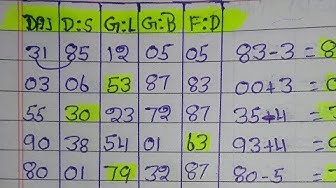 DSJ D:S G:L G:B F:D
31 85 12 05 05 83-3=8
03 06 53 87 83 00+3=0
55 30 23 72 87 35+4=
90 38 54 01 63 93+4=0
80 01 79 32 87 80-5=